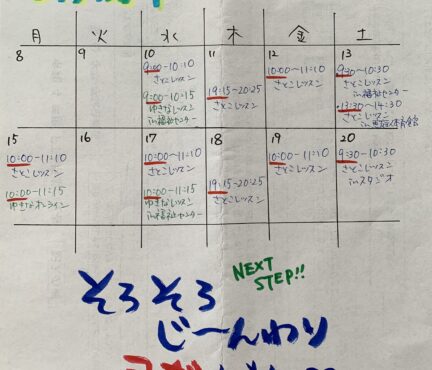 月 火 水 木 金 土
8 9 10 11 12 13
9:00-10:10
さとこレッスン
9:00-10:15
ゆきなレッスン
in福祉センター
19:15-20:25
さとこレッスン
10:00-11:10
さとこレッスン
9:30-10:30
さとこレッスン
in福祉センター
・13:30-14:30
15 16 17 18 19 20
10:00-11:10
さとこレッスン
10:00-11:15
ゆきなオンライン
10:00-11:10
さとこレッスン
10:00-11:15
ゆきなレッスン
in福祉センター
19:15-20:25
さとこレッスン
10:00-11:10
さとこレッスン
9:30-10:30
さとこレッスン
inスタジオ
NEXT
STEP!!
そろそろ
じーんわり